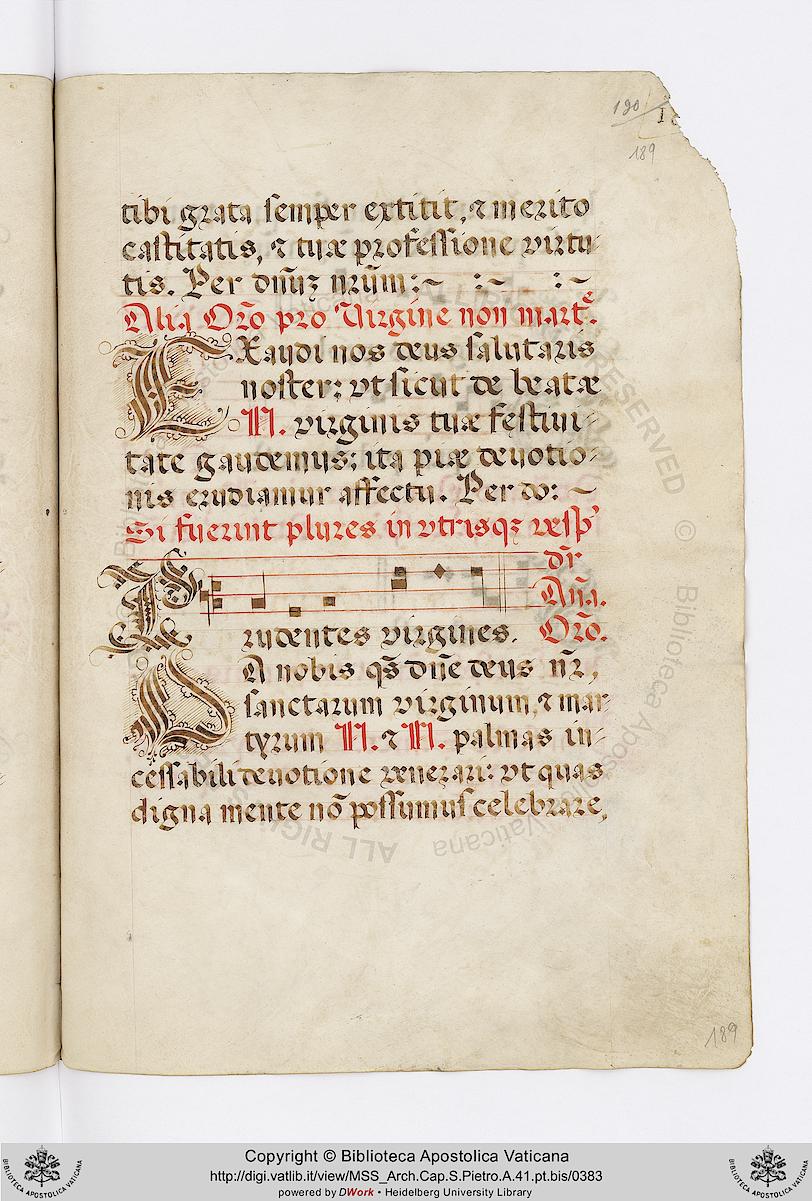 190
189
tibi grata semper extitit, ⁊ merito
castitatis, ⁊ tuæ professione virtu-
tis. Per dnūꝫ nrūm:~ :~ :~
Alia Orō pro Virgine non mart̄e.
EXaudi nos deus salutaris
noster: vt sicut de beatæ
N. virginis tuæ festiui-
tate gaudemus: ita piæ deuotio-
nis erudiamur affectu. Per do: ~
Si fuerint plures in vtrisqꝫ resp'
dr̄
Aña.
Prudentes virgines. Orō.
DA nobis qs̄ dnē deus nr̄,
sanctarum virginum, ⁊ mar-
tyrum N. ⁊ N. palmas in-
cessabili deuotione venerari: vt quas
digna mente nō possumus celebrare,
189
Copyright © Biblioteca Apostolica Vaticana
http://digi.vatlib.it/view/MSS_Arch.Cap.S.Pietro.A.41.pt.bis/0383
powered by DWork • Heidelberg University Library